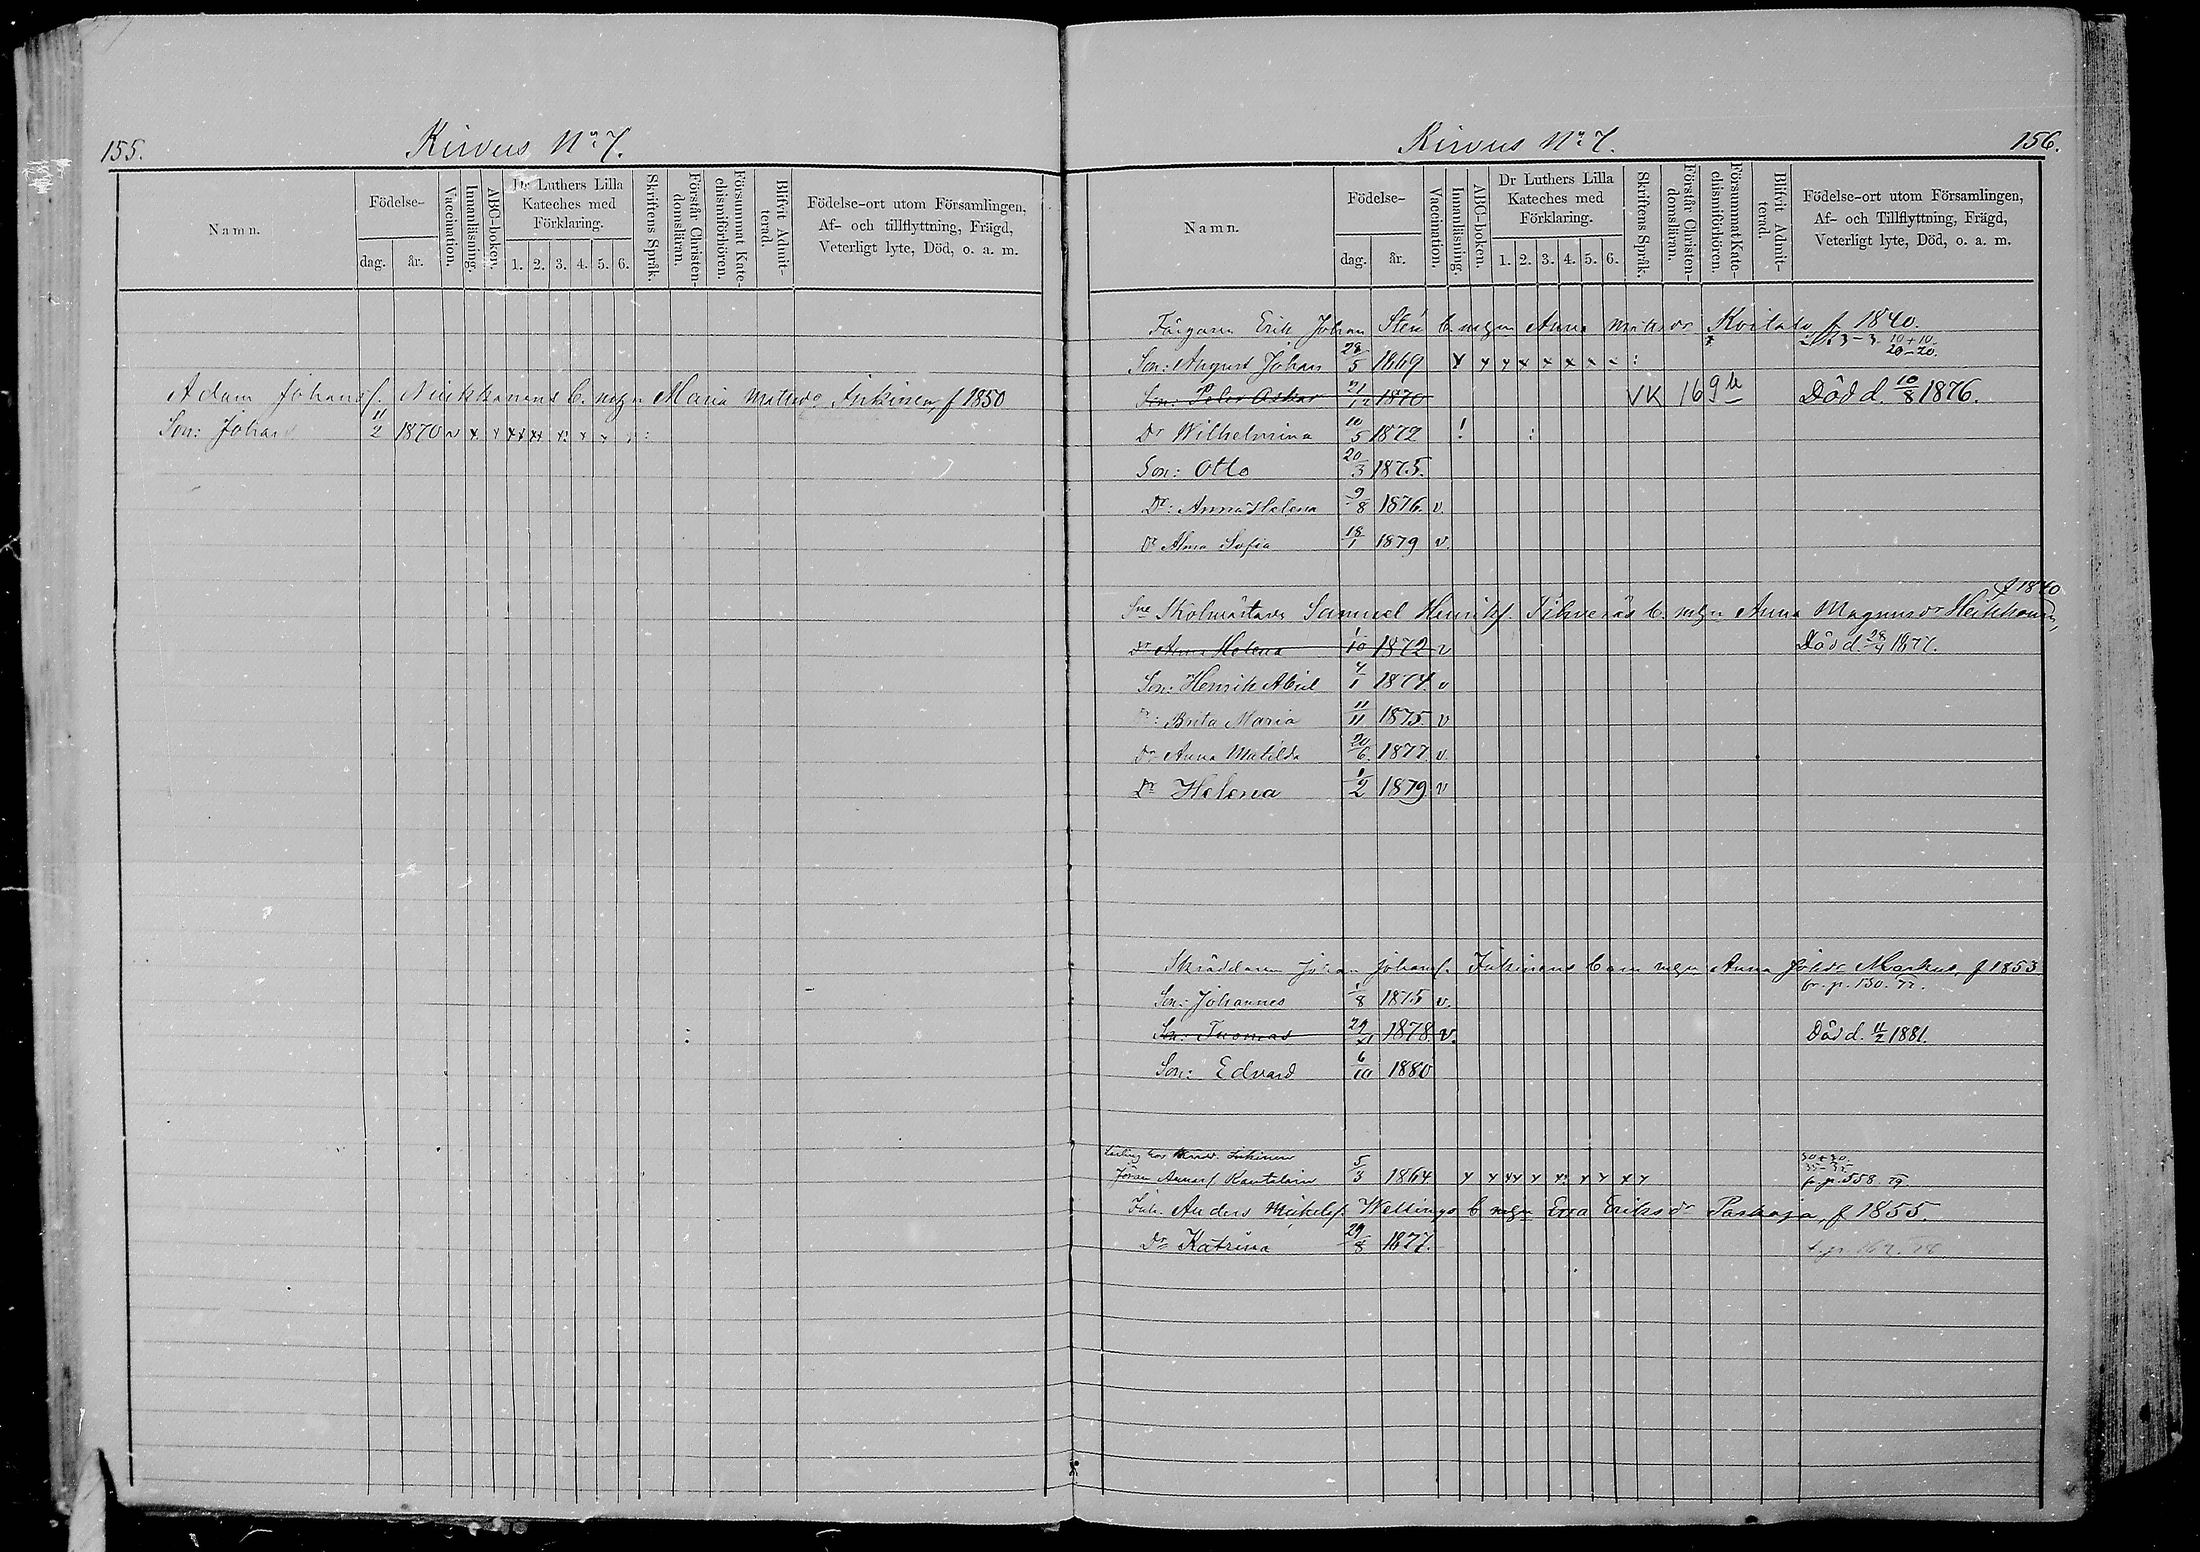 155.
Kirvus No 7.
Namn.
Födelse-
dag.
år.
Vaccination.
Innanläsning.
ABC-boken.
Dr Luthers Lilla
Kateches med
Förklaring.
1. 2. 3. 4. 5. 6.
Skriftens Språk.
Förstår Christen-
domsläran.
Försummat Kate-
chismiförhören.
Blifvit Admit-
terad.
Födelse-ort utom Församlingen,
Af- och tillflyttning, Frägd,
Veterligt lyte, Död, o. a. m.
Adam Johansf. b. m. Maria f 1850
Son: Johan 11/2 1870 v x x xx xx x: x x
Kirvus No 7.
156.
Namn.
Födelse-
dag.
år.
Vaccination.
Innanläsning.
ABC-boken.
Dr Luthers Lilla
Kateches med
Förklaring.
1. 2. 3. 4. 5. 6.
Skriftens Språk.
Förstår Christen-
domsläran.
Försummat Kate-
chismiförhören.
Blifvit Admit-
terad.
Födelse-ort utom Församlingen,
Af- och Tillflyttning, Frägd,
Veterligt lyte, Död, o. a. m.
Färgaren Erik Johan Sten b. m. Anna f 1840.
3-3 10+10.
20-20.
Son: August Johan 28/5 1869 x x x x x x x
Son: Peter Oskar 21/12 1870 VK 169 Död d. 10/8 1876.
Dr Wilhelmina 10/5 1872 ! :
Son: Otto 20/3 1875.
Dr: Anna Helena 9/8 1876. v.
Dr Alma Sofia 18/1 1879 v.
f 1840
Skolmästare Samuel Henriksf. b. m. Anna Magnusdr Heikkonen,
Dr Anna Helena 1/10 1872 v Död d. 28/4 1877.
Son: Henrik Abiel 4/1 1874. v
Dr: Brita Maria 11/11 1875 v
Dr Anna Matilda 20/6 1877 v.
Dr Helena 1/2 1879 v
Skräddaren Johan Johansf. Inkinens barn m. Anna Johdr Markus, f 1853
fr. p. 150. 77.
Son: Johannes 1/8 1875 v.
Son: Tuomas 29/ 1878. v. Död d. 11/2 1881.
Son: Edvard 6/10 1880
Lärling hos Skrädd. Inkinen
30+30.
35-35
Kantelain 5/3 1864 x x xx x x: x x x x fr. p. 558. 79
Inh. Anders Mickelsf. Wellings b m. Eva Eriksdr Paskoja, f 1855.
Dr Katrina 29/8 1877. 78